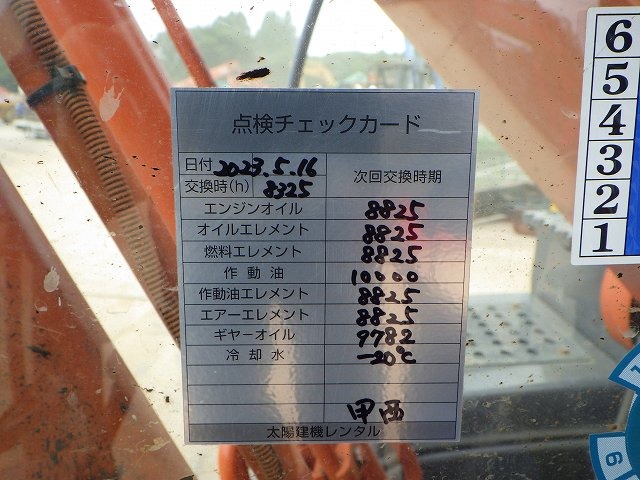 点検チェックカード
日付 2023.5.16
交換時(h) 8325
次回交換時期
エンジンオイル 8825
オイルエレメント 8825
燃料エレメント 8825
作動油 10000
作動油エレメント 8825
エアーエレメント 8825
ギヤーオイル 9782
冷却水 -20℃
甲西
太陽建機レンタル
6
5
4
3
2
1
1
6